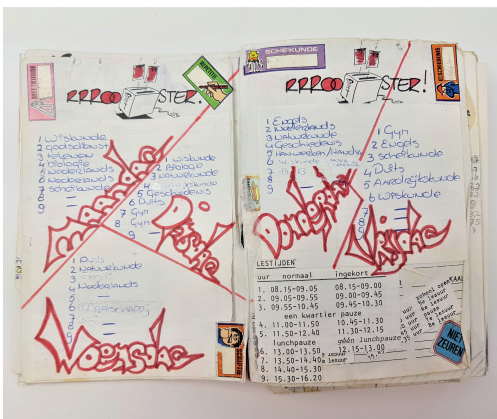 WISKUNDE
RRROOOSTER!
1 Wiskunde
2 Godsdienst
3 tekenen
4 biologie
5 Nederlands
6 Nederlands
7 scheikunde
8 —
9 —
Maandag
1 wiskunde
2 Biologie
3 Nederlands
4
5 Geschiedenis
6 Duits
7 Gym
8 Gym
9 —
Dinsdag
1 Duits
2 Natuurkunde
3
4 Nederlands
5
6
7
8
9
Woensdag
SCHEIKUNDE
RRROOOSTER!
1 Engels
2 Nederlands
3 Natuurkunde
4 Geschiedenis
5
6
7
8
9
Donderdag
1 Gym
2 Engels
3 Scheikunde
4 Duits
5 Aardrijkskunde
6 Wiskunde
7 —
8 —
9
Vrijdag
LESTIJDEN
uur normaal ingekort
1. 08.15-09.05 08.15-09.00
2. 09.05-09.55 09.00-09.45
3. 09.55-10.45 09.45-10.30
een kwartier pauze
4. 11.00-11.50 10.45-11.30
5. 11.50-12.40 11.30-12.15
lunchpauze géén lunchpauze
6. 13.00-13.50 12.15-13.00
7. 13.50-14.40
8. 14.40-15.30
9. 15.30-16.20
NIET
ZEUREN